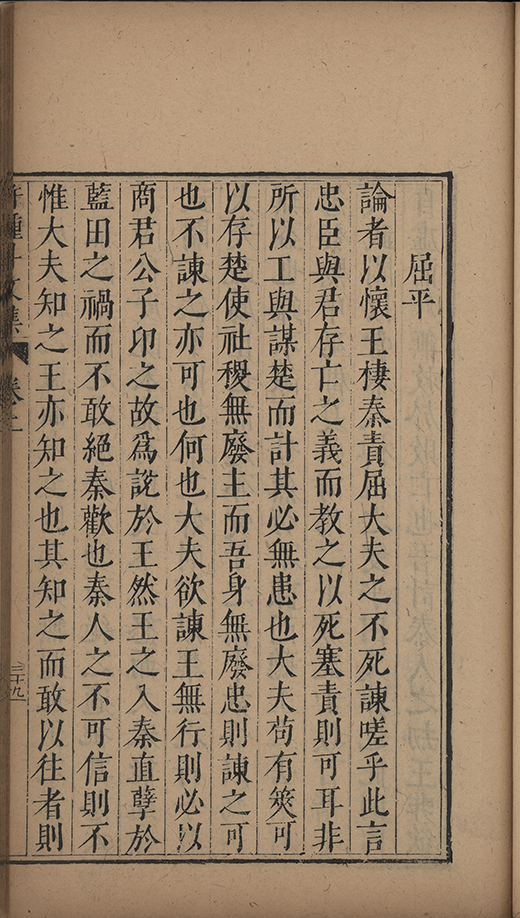 屈平
論者以懷王棲秦責屈大夫之不死諫嗟乎此言
忠臣與君存亡之義而教之以死塞責則可耳非
所以工與謀楚而計其必無患也大夫苟有筴可
以存楚使社稷無廢主而吾身無廢忠則諫之可
也不諫之亦可也何也大夫欲諫王無行則必以
商君公子卬之故爲說於王然王之入秦直孽於
藍田之禍而不敢絕秦歡也秦人之不可信則不
惟大夫知之王亦知之也其知之而敢以往者則
文集
卷二
三十九